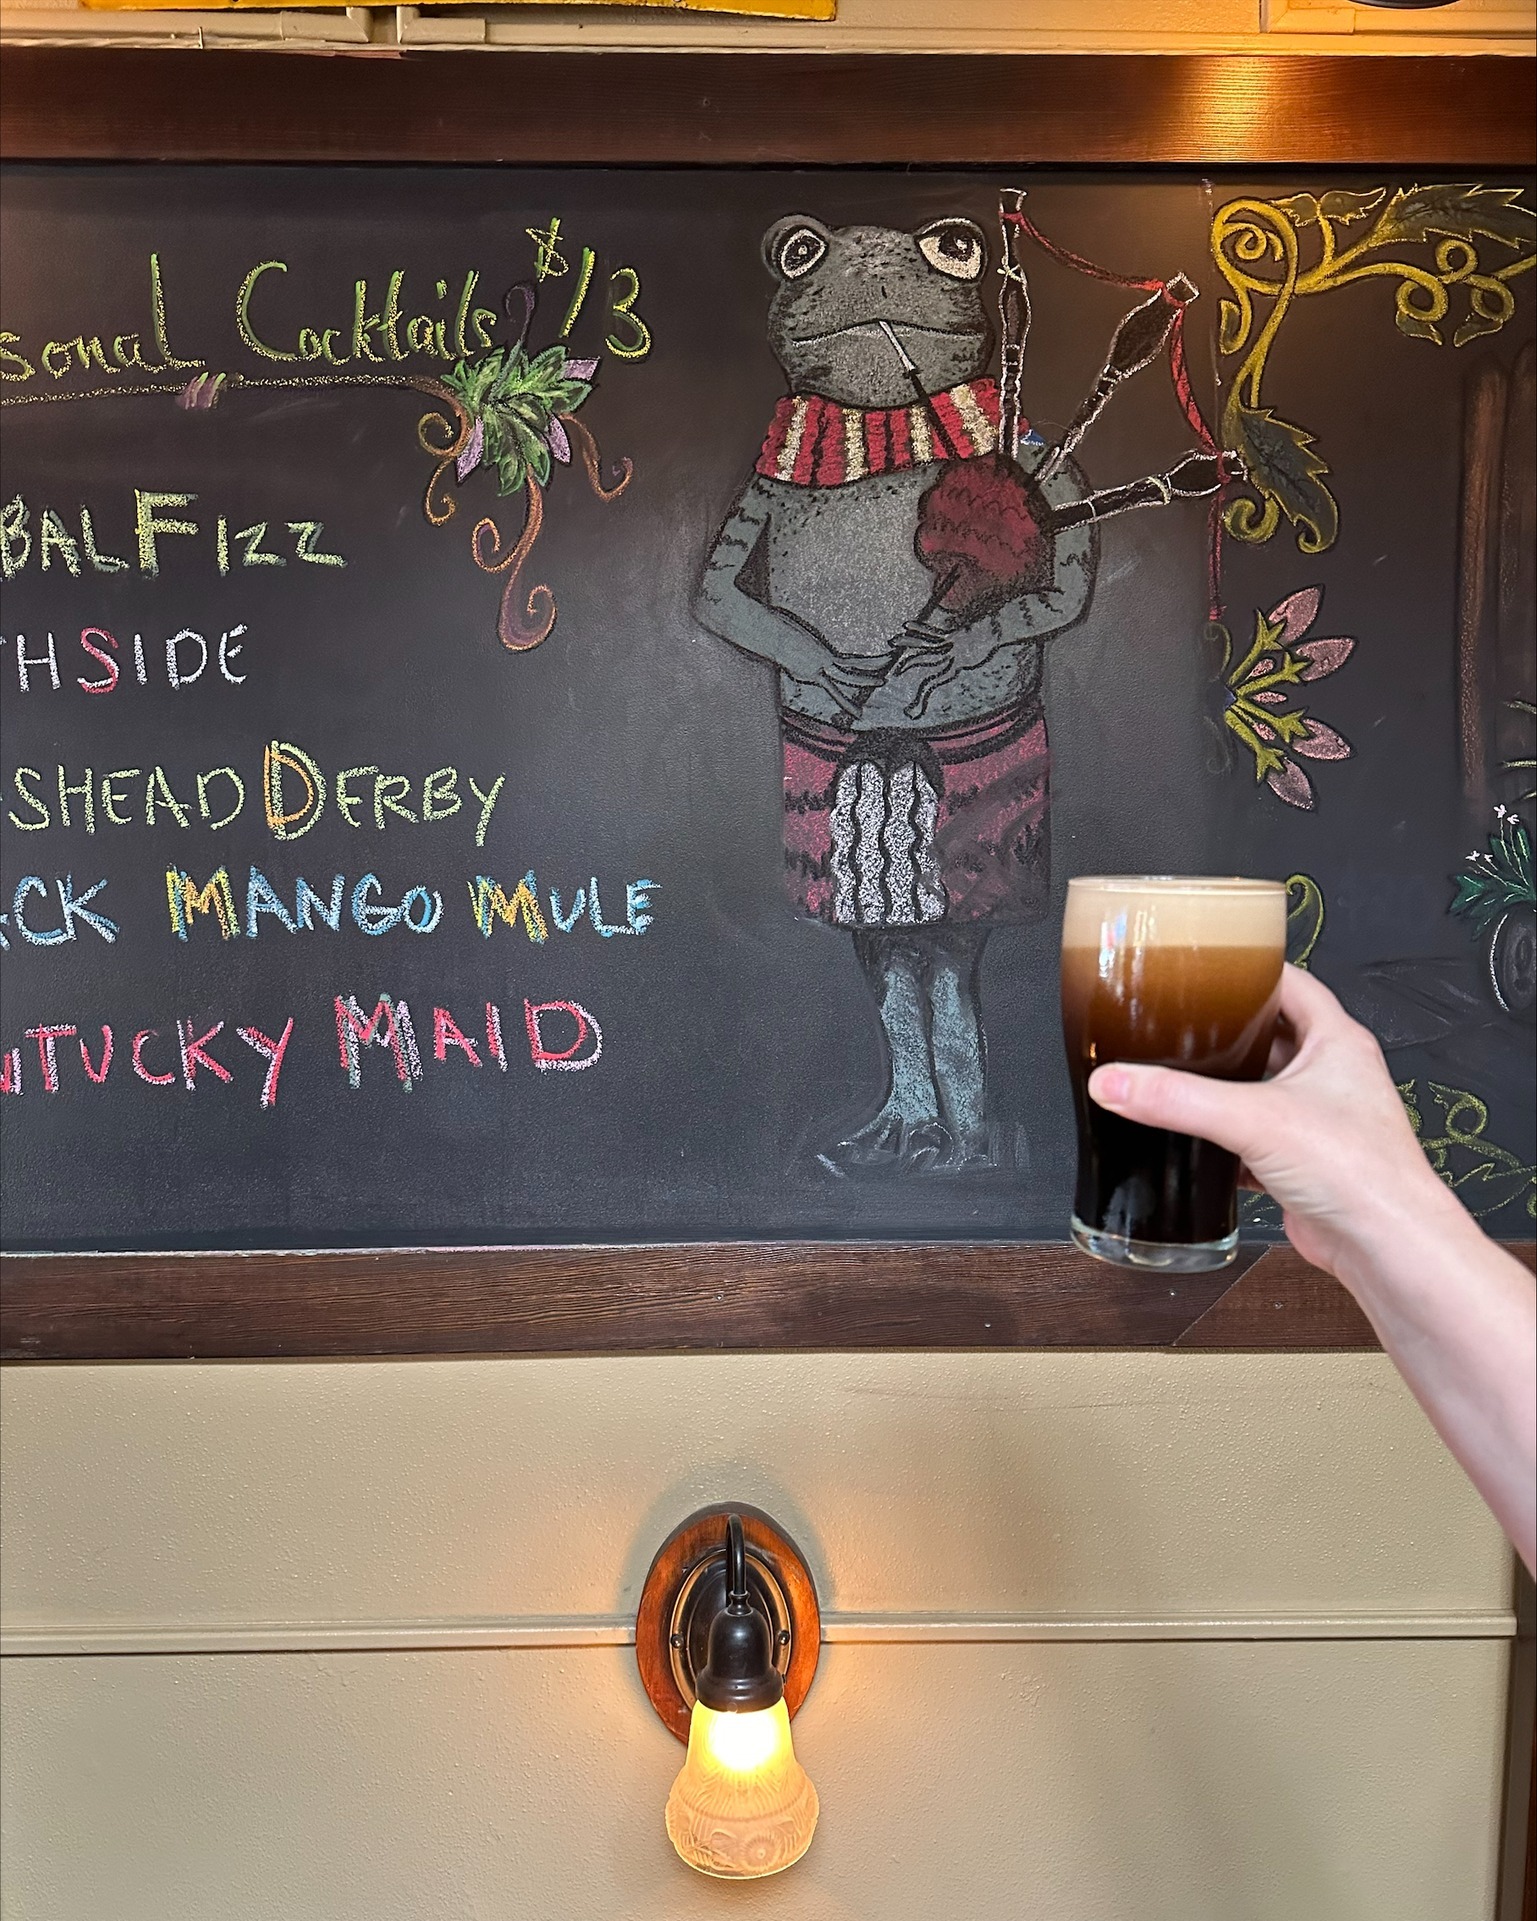 sonal Cocktails $13
BAL FIZZ
HSIDE
SHEAD DERBY
CK MANGO MULE
TUCKY MAID